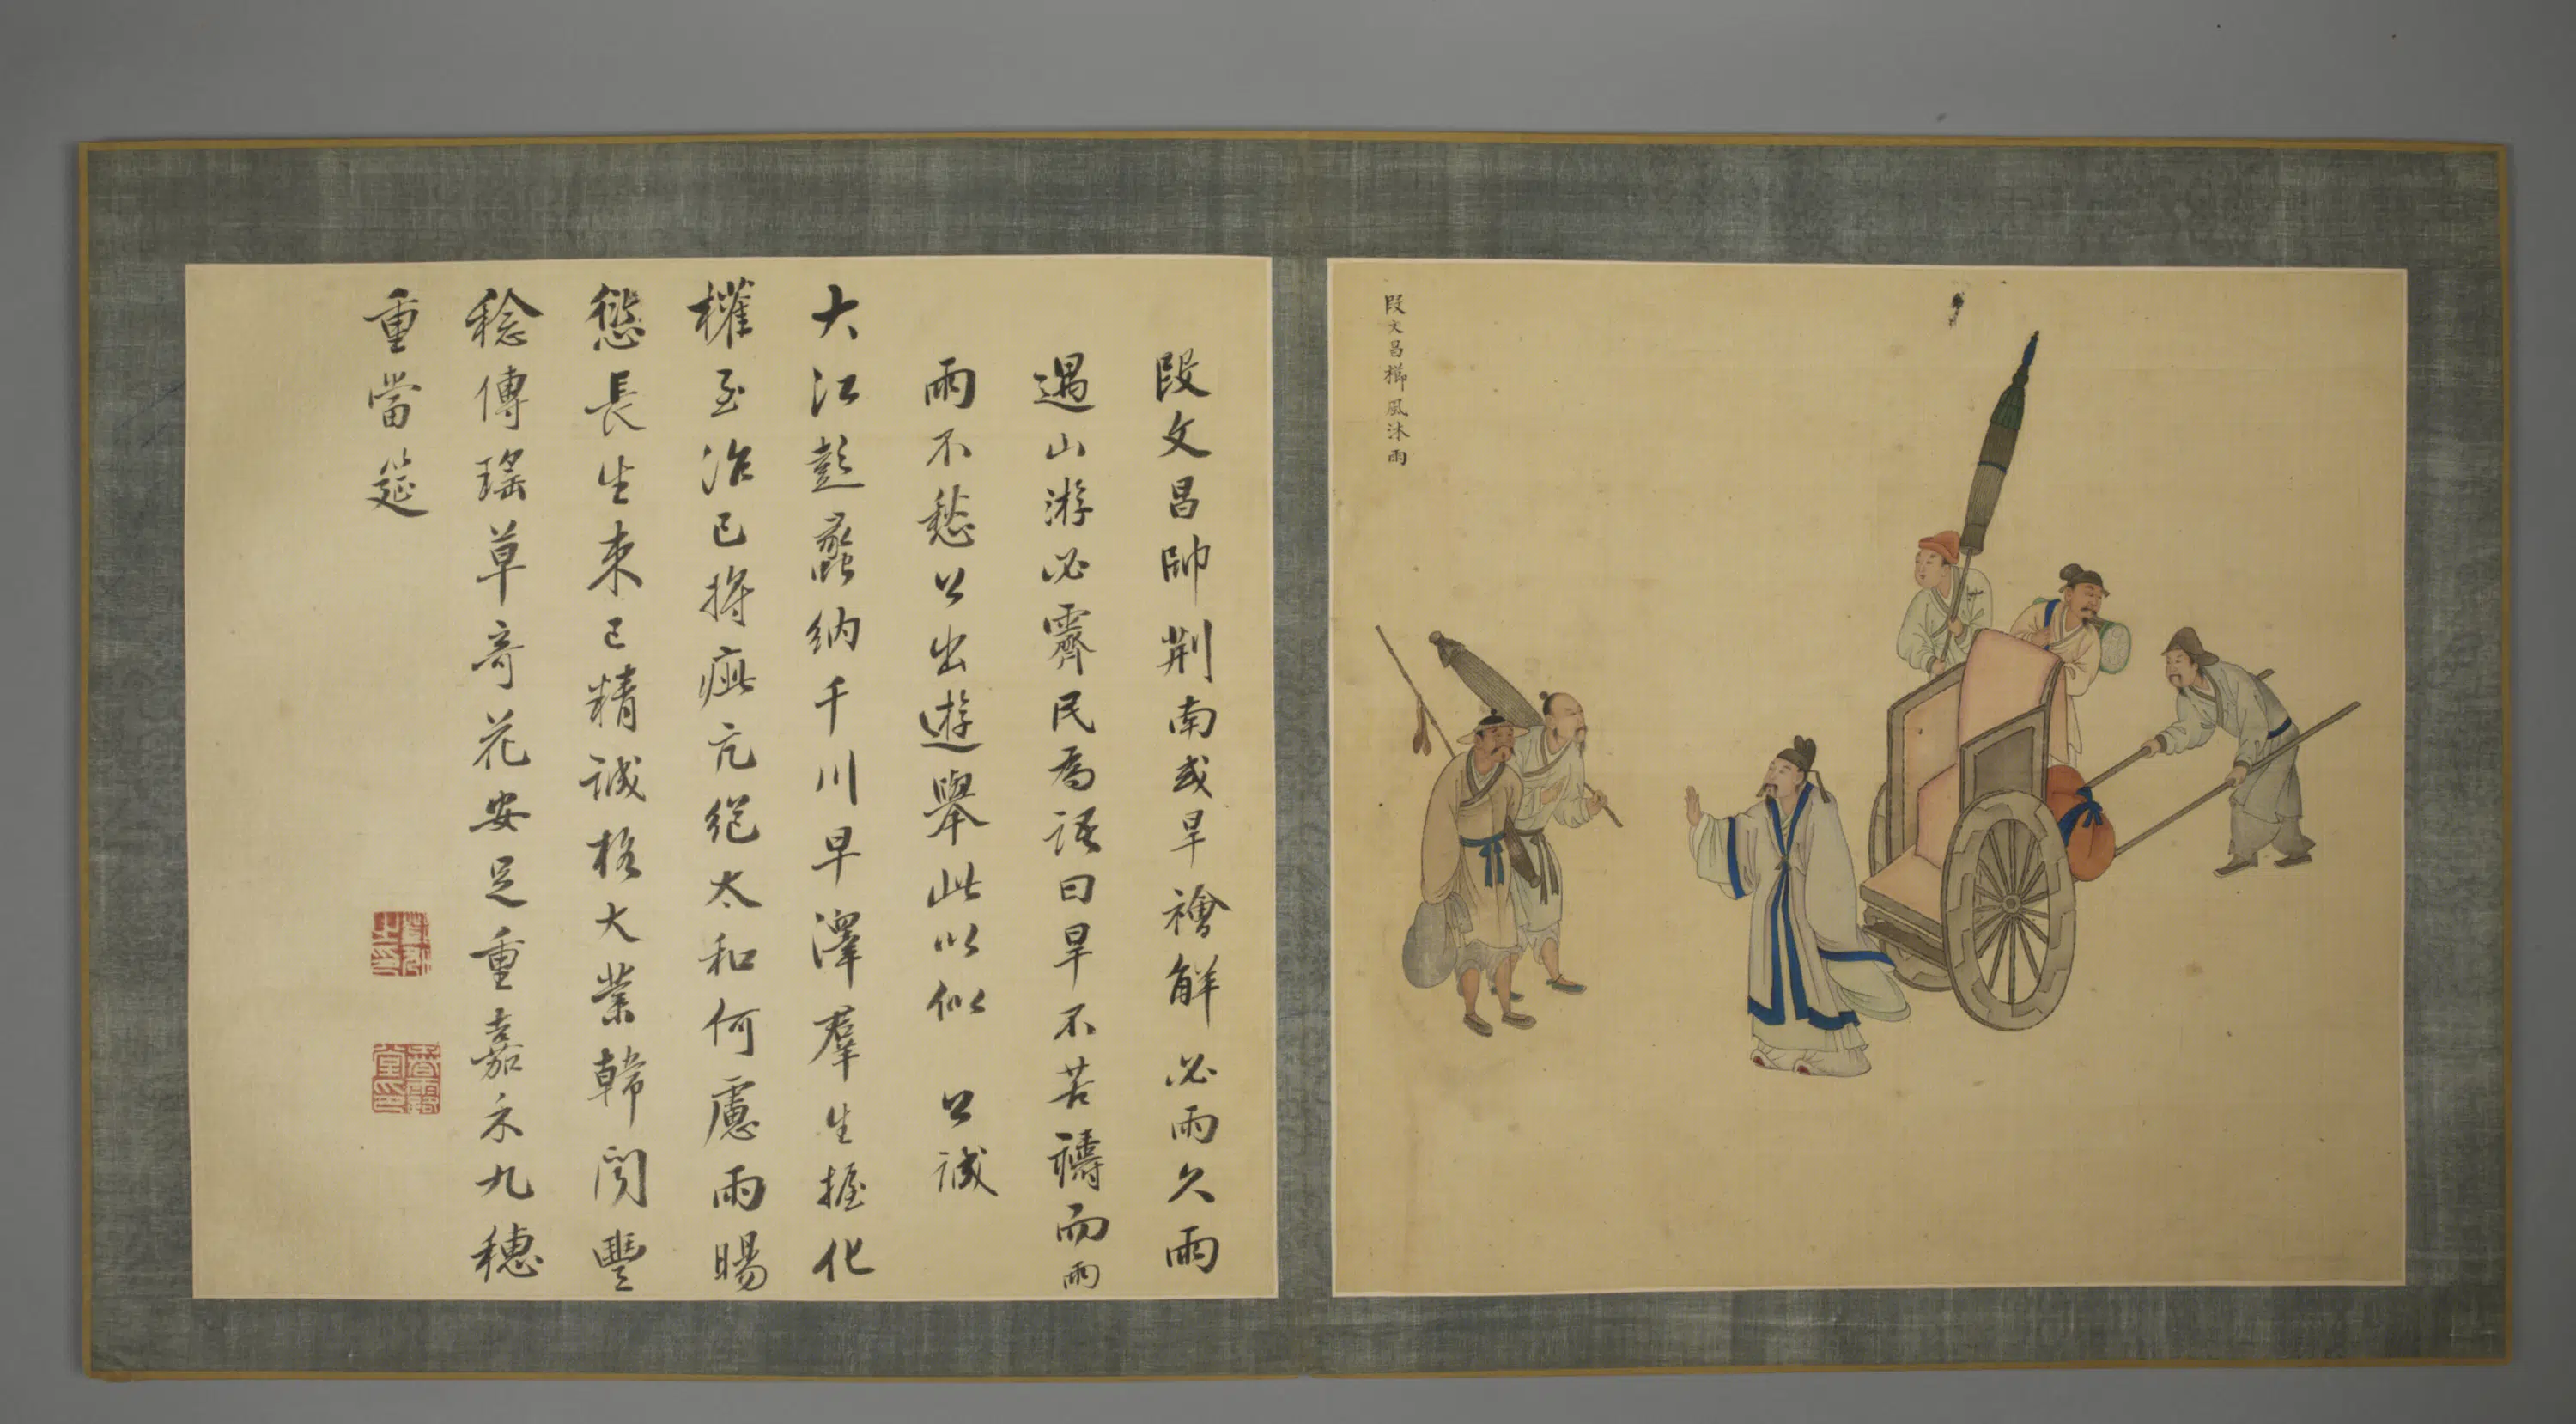 段文昌櫛風沐雨
段文昌帥荆南或旱禬解必雨久雨
遇山游必霽民為語曰旱不苦禱而雨
雨不愁公出遊舉此以似 公誠
大江彭蠡納千川早澤羣生握化
權至治已將疵亢絕太和何慮雨暘
愆長生来已精誠格大業歸閒豐
稔傳瑤草奇花安足重嘉禾九穗
重當筵